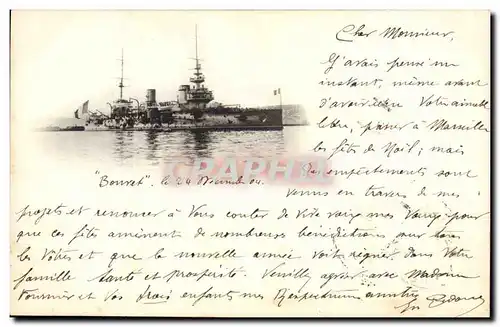 Cher Monsieur,
J'avais pensé un
instant, même avant
d'avoir Votre aimable
passer à Marseille
les fêtes de Noël; mais
empêchements sont
"Bouvet". le 24 Décembre 04. venus en travers de mes
projets et renoncer à Vous de vive voix mes Vœux pour
que ces fêtes amènent de nombreuses bénédictions sur tous
les Vôtres et que la nouvelle année voit régner dans Votre
famille santé et prospérité. Veuillez agréer avec Madame
Fournier et Vos trois enfants mes